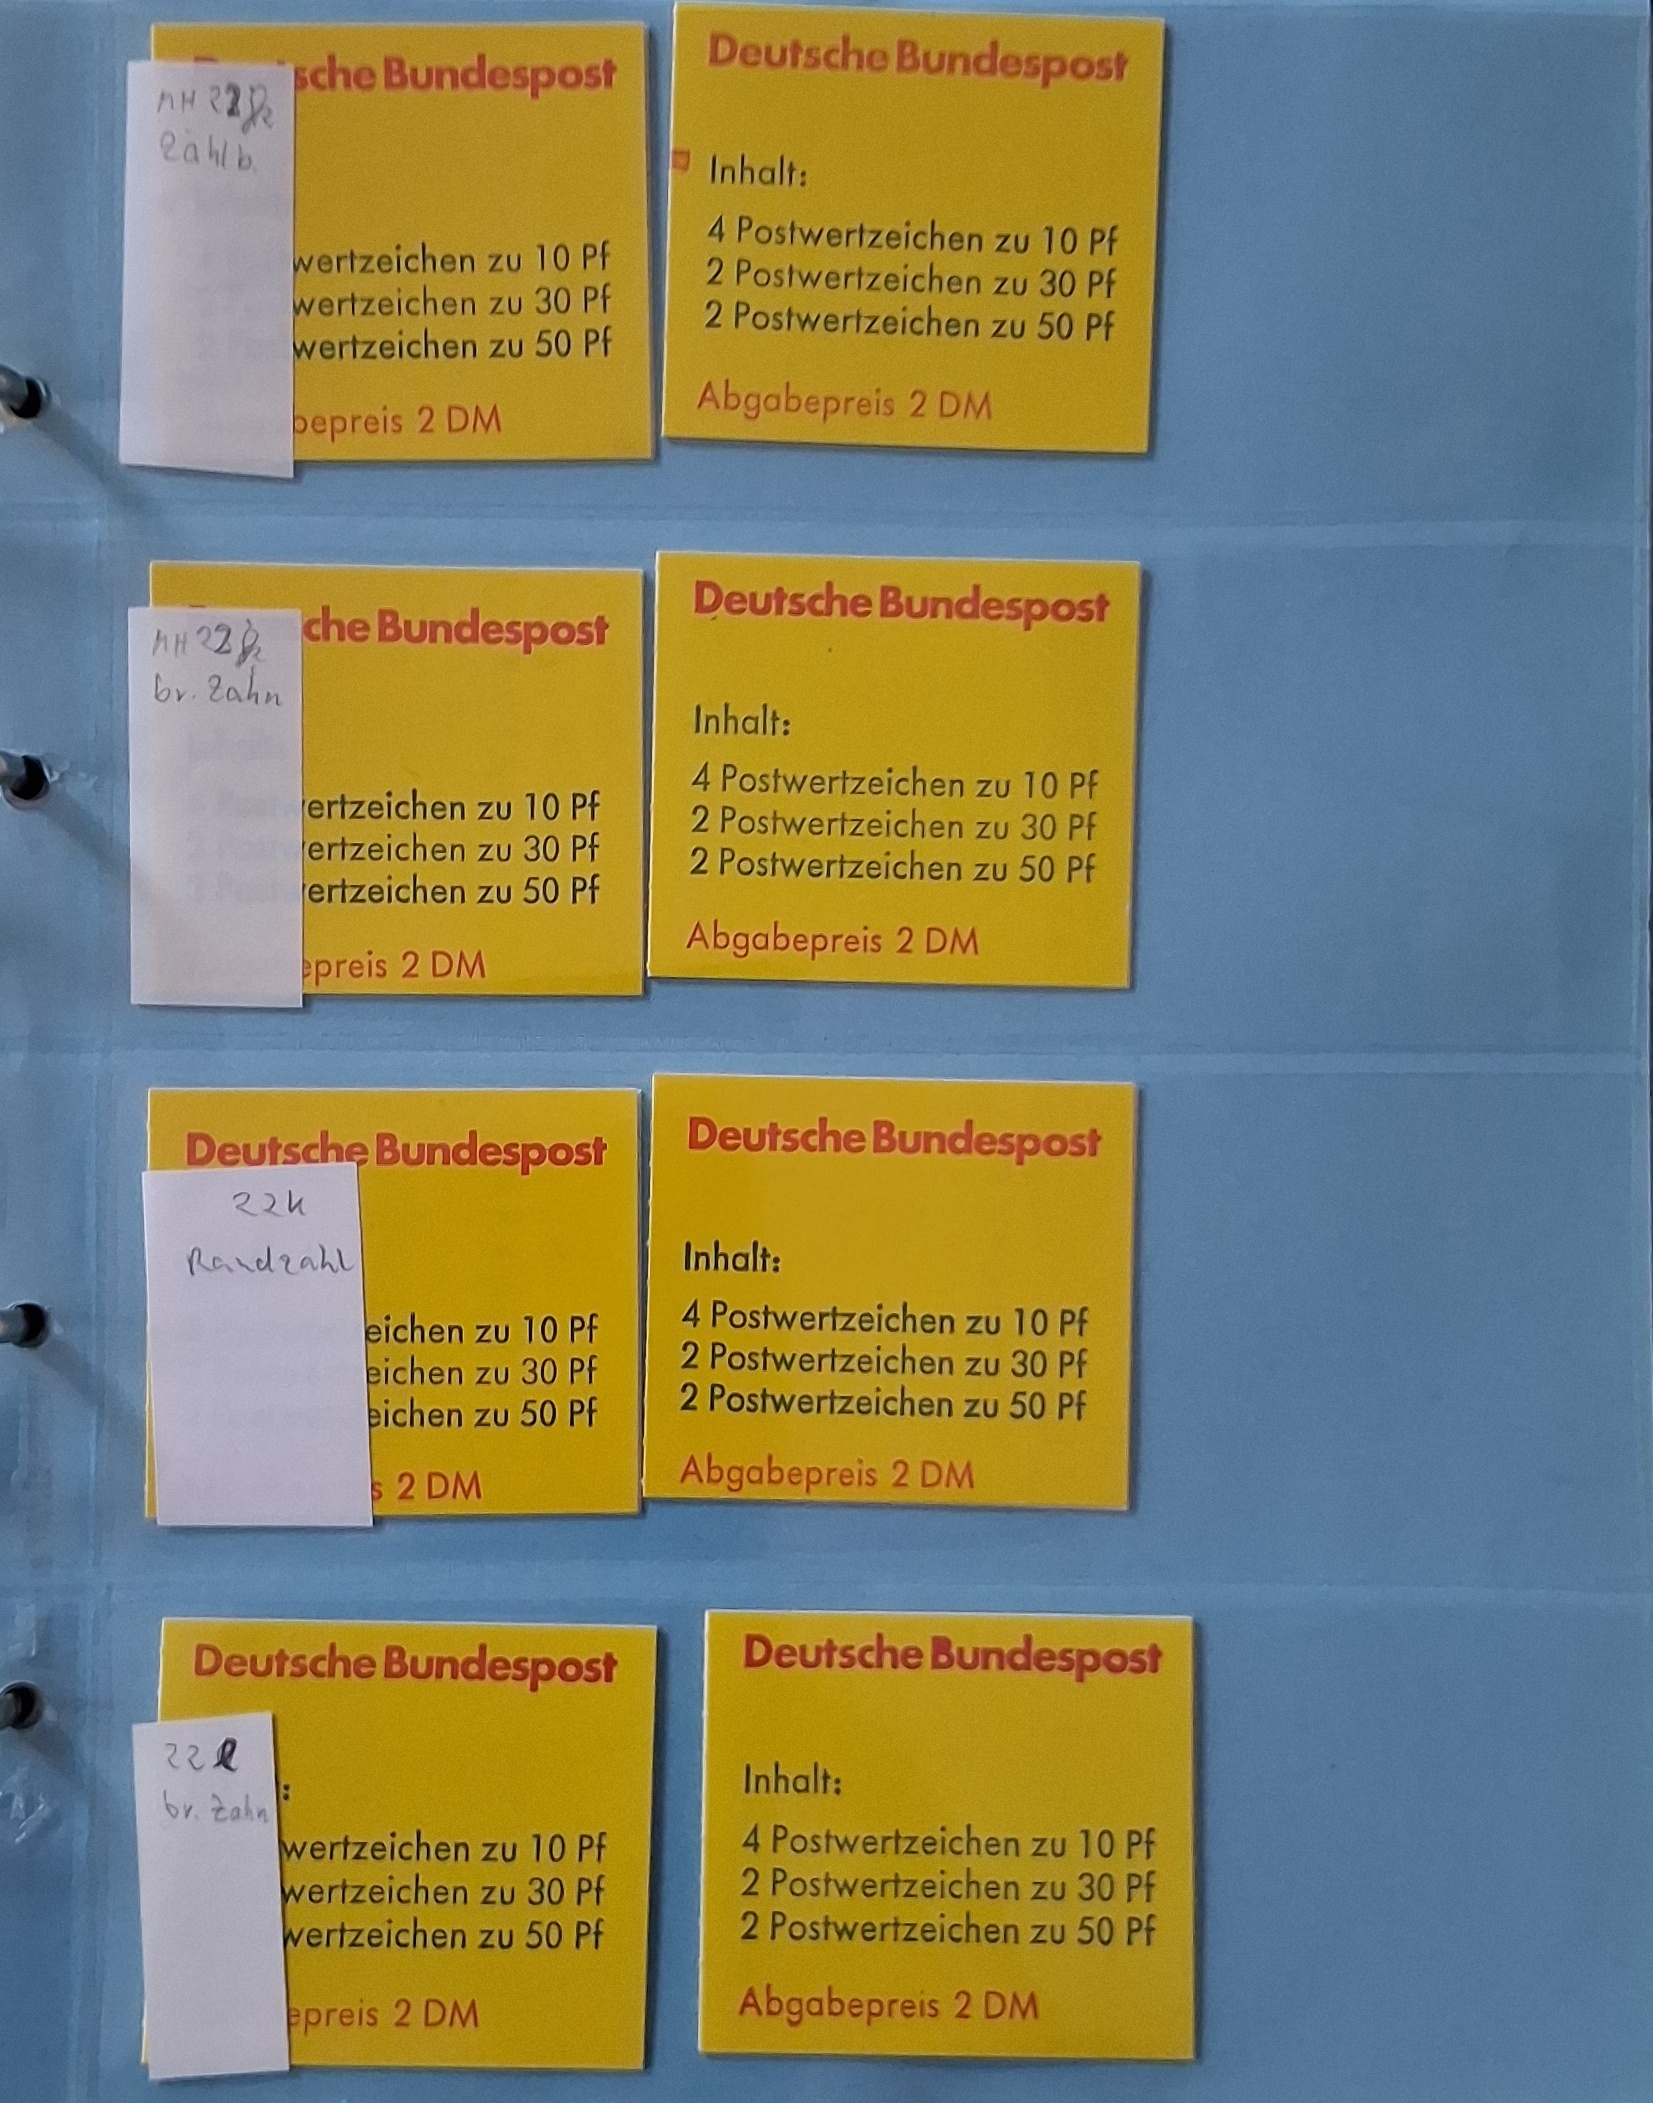 sche Bundespost
MH 22
Zählb.
wertzeichen zu 10 Pf
wertzeichen zu 30 Pf
wertzeichen zu 50 Pf
bepreis 2 DM
Deutsche Bundespost
Inhalt:
4 Postwertzeichen zu 10 Pf
2 Postwertzeichen zu 30 Pf
2 Postwertzeichen zu 50 Pf
Abgabepreis 2 DM
che Bundespost
MH 22
br. Zahn
ertzeichen zu 10 Pf
ertzeichen zu 30 Pf
ertzeichen zu 50 Pf
epreis 2 DM
Deutsche Bundespost
Inhalt:
4 Postwertzeichen zu 10 Pf
2 Postwertzeichen zu 30 Pf
2 Postwertzeichen zu 50 Pf
Abgabepreis 2 DM
Deutsche Bundespost
22k
Randzahl
eichen zu 10 Pf
eichen zu 30 Pf
eichen zu 50 Pf
s 2 DM
Deutsche Bundespost
Inhalt:
4 Postwertzeichen zu 10 Pf
2 Postwertzeichen zu 30 Pf
2 Postwertzeichen zu 50 Pf
Abgabepreis 2 DM
Deutsche Bundespost
22 l
br. Zahn
:
wertzeichen zu 10 Pf
wertzeichen zu 30 Pf
wertzeichen zu 50 Pf
epreis 2 DM
Deutsche Bundespost
Inhalt:
4 Postwertzeichen zu 10 Pf
2 Postwertzeichen zu 30 Pf
2 Postwertzeichen zu 50 Pf
Abgabepreis 2 DM